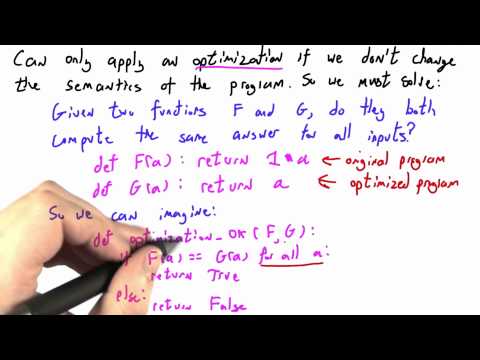 Can only apply an optimization if we don't change
the semantics of the program. So we must solve:
Given two functions F and G, do they both
compute the same answer for all inputs?
def F(a): return 1*a ← original program
def G(a): return a ← optimized program
So we can imagine:
def optimization_OK(F,G):
if F(a) == G(a) for all a:
return True
else:
return False